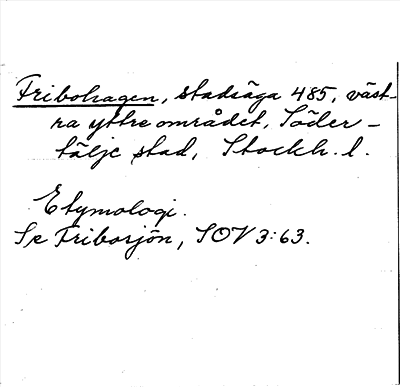 Fribohagen, stadsäga 485, väst-
ra yttre området, Söder-
tälje stad, Stockh. l.
Etymologi.
Se Friborjön, SOV 3:63.